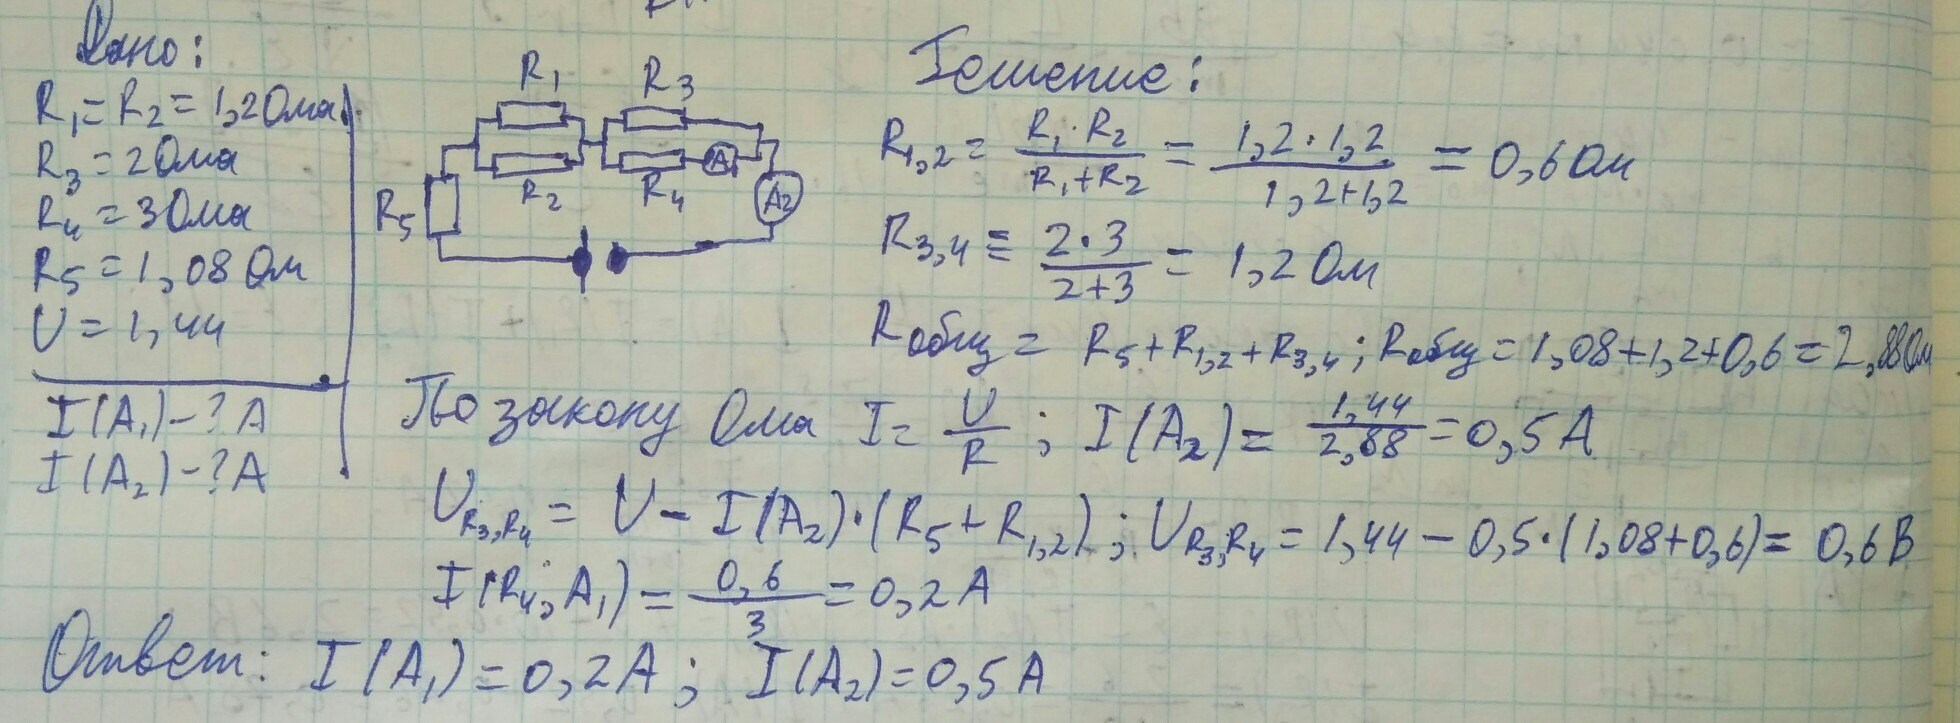 Дано:
R₁ = R₂ = 1,2 Ома
R₃ = 2 Ома
R₄ = 3 Ома
R₅ = 1,08 Ом
U = 1,44
I(A₁) - ? A
I(A₂) - ? A
R₁ R₃
R₂ R₄ A
R₅ A₂
Решение:
R₁,₂ = R₁·R₂/R₁+R₂ = 1,2·1,2/1,2+1,2 = 0,6 Ом
R₃,₄ = 2·3/2+3 = 1,2 Ом
Rобщ = R₅+R₁,₂+R₃,₄; Rобщ = 1,08+1,2+0,6 = 2,88 Ом
По закону Ома I = U/R; I(A₂) = 1,44/2,88 = 0,5 A
U_R₃,R₄ = U - I(A₂)·(R₅+R₁,₂); U_R₃,R₄ = 1,44 - 0,5·(1,08+0,6) = 0,6 В
I(R₄,A₁) = 0,6/3 = 0,2 A
Ответ: I(A₁) = 0,2 A; I(A₂) = 0,5 A